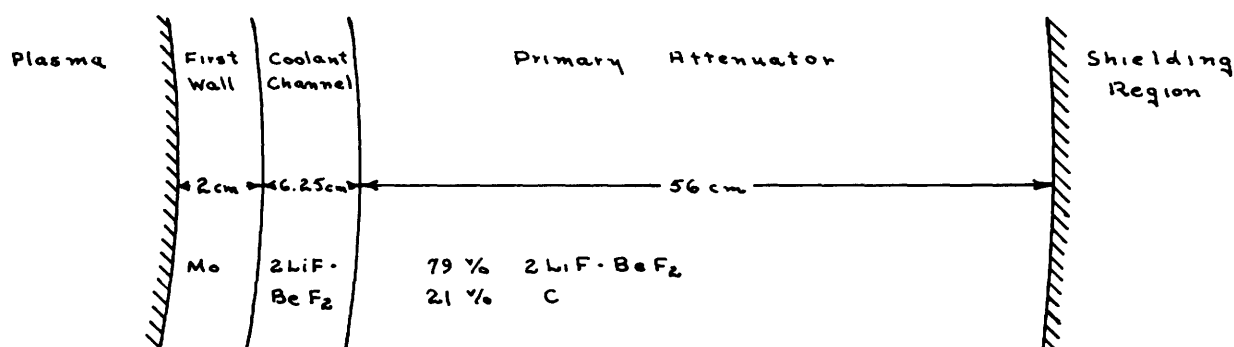 Plasma
First
Wall
Coolant
Channel
Primary Attenuator
Shielding
Region
2cm
6.25cm
56 cm
Mo
2LiF·
BeF₂
79 % 2LiF·BeF₂
21 % C